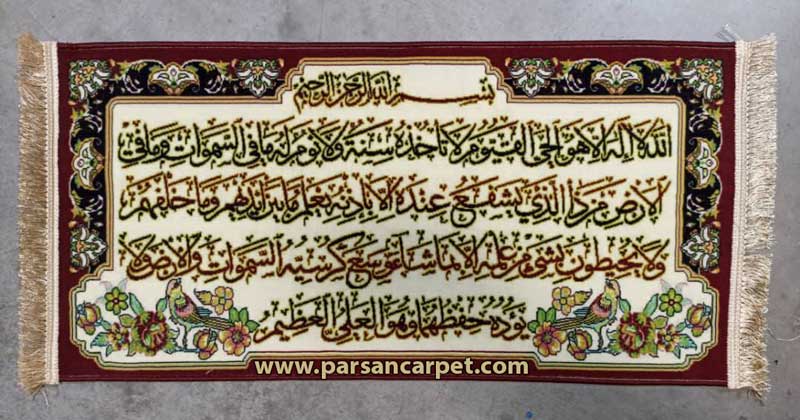 بسم الله الرحمن الرحيم
الله لا إله إلا هو الحي القيوم لا تأخذه سنة ولا نوم له ما في السموات وما في
الأرض من ذا الذي يشفع عنده إلا بإذنه يعلم ما بين أيديهم وما خلفهم
ولا يحيطون بشيء من علمه إلا بما شاء وسع كرسيه السموات والأرض ولا
يؤده حفظهما وهو العلي العظيم
www.parsancarpet.com